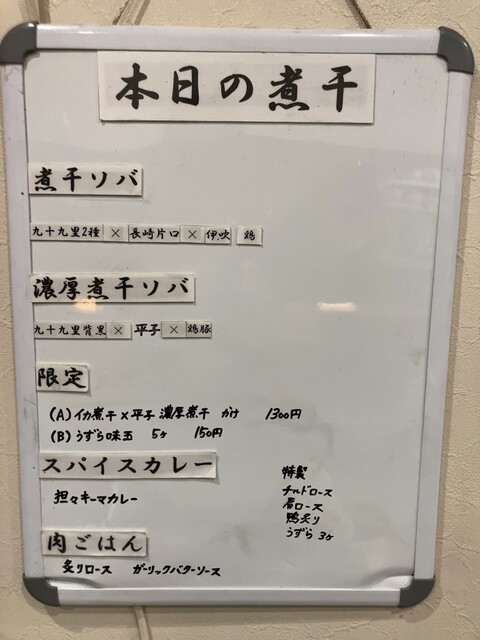 本日の煮干
煮干ソバ
九十九里2種 × 長崎片口 × 伊吹 鶏
濃厚煮干ソバ
九十九里背黒 × 平子 × 鶏豚
限定
(A) イカ煮干×平子 濃厚煮干 かけ 1300円
(B) うずら味玉 5ケ 150円
スパイスカレー
担々キーマカレー
特製
チルドロース
肩ロース
鴨炙り
うずら 3ケ
肉ごはん
炙りロース ガーリックバターソース